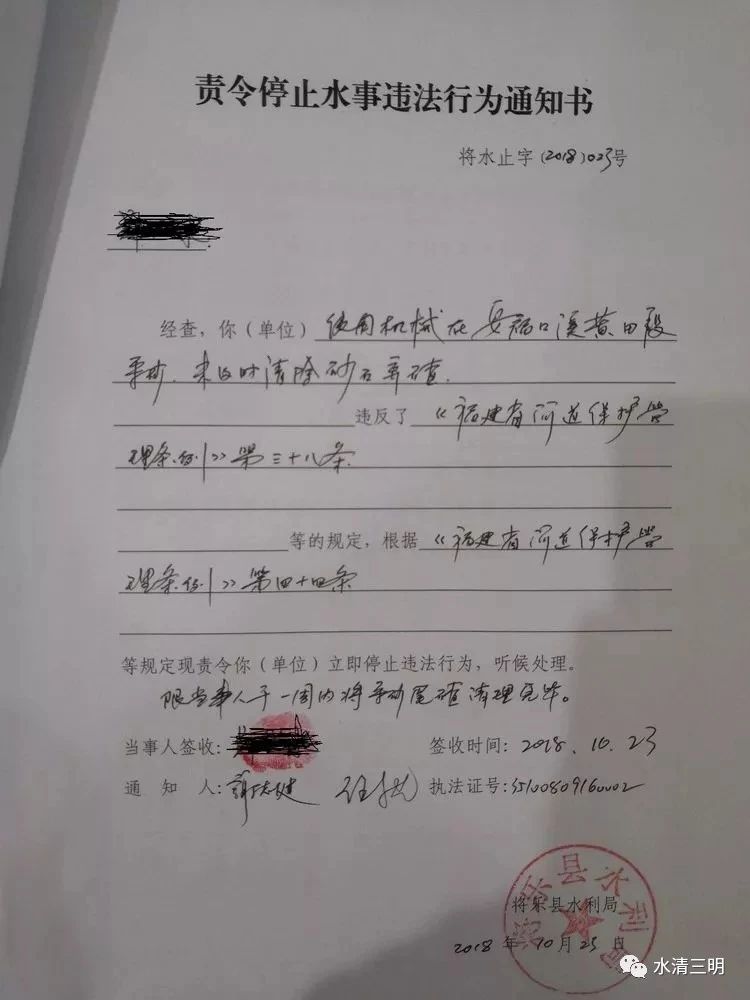 责令停止水事违法行为通知书
将水止字(2018)023号
经查，你（单位）使用机械在安福口溪黄田段
采砂、未及时清除砂石弃碴
违反了《福建省河道保护管
理条例》第三十八条
等的规定，根据《福建省河道保护管
理条例》第四十四条
等规定现责令你（单位）立即停止违法行为，听候处理。
限当事人于一周内将弃砂尾碴清理完毕。
当事人签收：
签收时间：2018.10.23
通 知 人：
执法证号：
将乐县水利局
将乐县水利局
2018年10月23日
水清三明